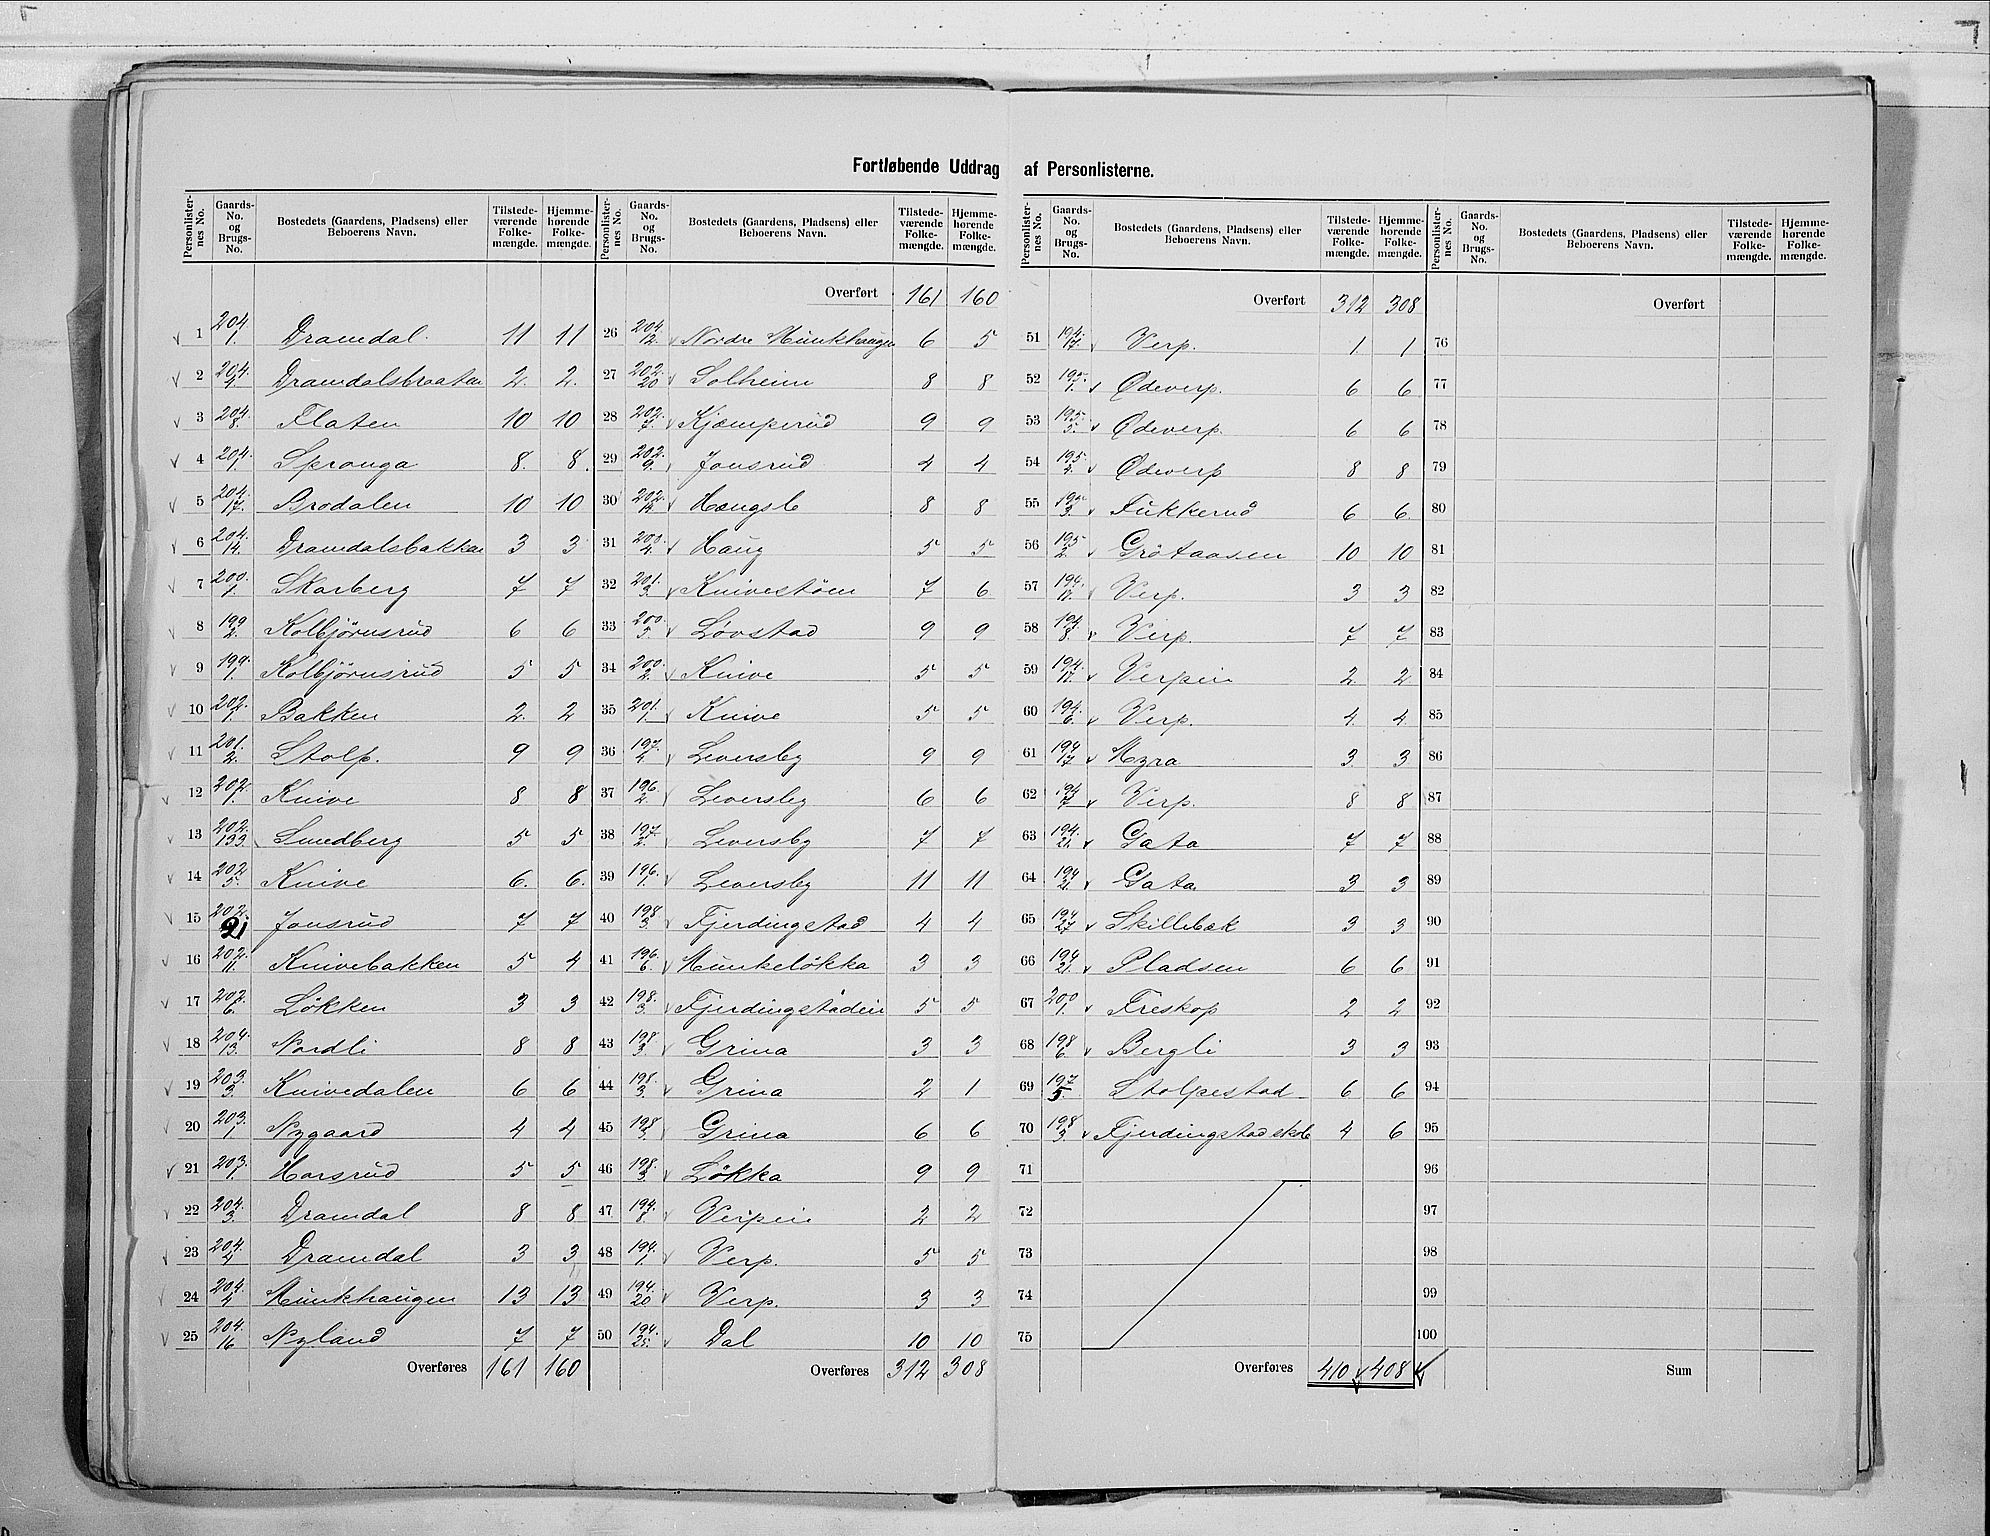 Fortløbende Uddrag af Personlisterne.
Personlisternes No. Gaards-No. og Brugs-No. Bostedets (Gaardens, Pladsens) eller Beboerens Navn. Tilstedeværende Folkemængde. Hjemmehørende Folkemængde.
1 204/1. Dramdal. 11 11
2 204/4. Dramdalsbraaten 2. 2.
3 204/8. Flaten 10 10
4 204/1. Spronga 8. 8.
5 204/17. Brodalen 10 10
6 204/14. Dramdalsbakken 3 3
7 200/1. Skarberg 7 7
8 199/2. Kolbjörnsrud 6 6
9 199/1. Kolbjörnsrud 5 5
10 202/1. Bakken 2. 2
11 201/2. Stolp. 9 9
12 202/1. Knive 8 8
13 202/133. Smedberg 5 5
14 202/5. Knive 6. 6.
15 202/21 Jonsrud 7 7
16 202/11. Knivebakken 5 4
17 202/6. Løkken 3 3
18 204/13. Nordli 8 8
19 203/3. Knivedalen 6 6
20 203/1 Nygaard 4 4
21 203/1. Horsrud 5 5
22 204/3. Dramdal 8 8
23 204/4 Dramdal 3 3
24 204/4 Munkhaugen 13 13
25 204/16 Nyland 7 7
Overføres 161 160
Personlisternes No. Gaards-No. og Brugs-No. Bostedets (Gaardens, Pladsens) eller Beboerens Navn. Tilstedeværende Folkemængde. Hjemmehørende Folkemængde.
Overført 161 160
26 204/12. Nordre Munkhaugen 6 5
27 202/20 Solheim 8 8
28 202/7. Kjæmperud 9 9
29 202/9. Jonsrud 4 4
30 202/12 Hængsle 8 8
31 200/4. Haug 5 5
32 201/3. Knivestöen 7 6
33 200/3. Lövstad 9 9
34 200/2. Knive 5 5
35 201/1. Knive 5 5
36 197/4 Leversby 9 9
37 196/2. Leversby 6 6
38 197/2. Leversby 7 7
39 196/1. Leversby 11 11
40 198/3. Fjerdingstad 4 4
41 196/6. Munkeløkka 3 3
42 198/3. Fjerdingstadeie 5 5
43 198/3. Grina 3 3
44 198/3. Grina 2 1
45 198/3. Grina 6 6
46 198/3. Løkka 9 9
47 194/8. Verpeie 2 2
48 194/1. Verp. 5 5
49 194/20 Verp. 3 3
50 194/25. Dal 10 10
Overføres 312 308
Personlisternes No. Gaards-No. og Brugs-No. Bostedets (Gaardens, Pladsens) eller Beboerens Navn. Tilstedeværende Folkemængde. Hjemmehørende Folkemængde.
Overført 312 308
51 194/17. Verp. 1 1
52 195/1. Ødeverp. 6 6
53 195/5. Ødeverp. 6 6
54 195/4. Ødeverp 8 8
55 195/3. Fukkerud 6 6.
56 195/2. Grötaasen 10 10
57 194/17. Verp. 3 3
58 194/8. Verp. 7 7
59 194/17. Verpeie 2 2
60 194/6. Verp. 4 4
61 194/17 Myra 3 3
62 194/7 Verp. 8 8
63 194/21. Gata 7 7
64 194/21. Gata 3 3
65 194/27 Skillebæk 3 3
66 194/21. Pladsen 6 6
67 200/1. Freskop 2 2
68 198/6. Bergli 3 3
69 197/5. Stolpestad 6 6
70 198/3. Fjerdingstad skole 4 6
71
72
73
74
75
Overføres 410 408
Personlisternes No. Gaards-No. og Brugs-No. Bostedets (Gaardens, Pladsens) eller Beboerens Navn. Tilstedeværende Folkemængde. Hjemmehørende Folkemængde.
Overført
76
77
78
79
80
81
82
83
84
85
86
87
88
89
90
91
92
93
94
95
96
97
98
99
100
Sum